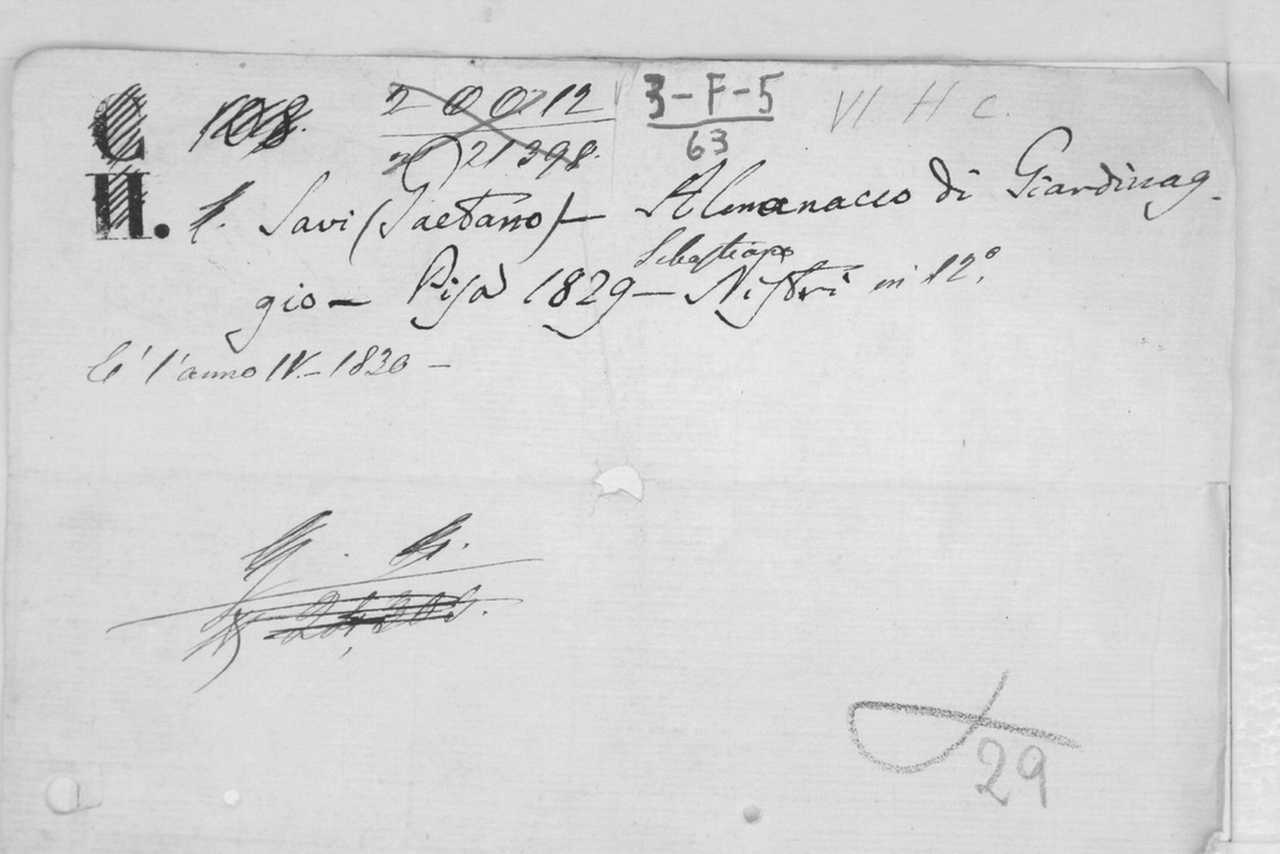 C. 108. 2 00 12 3-F-5 VI H c.
2) 21398. 63
H. 1. Savi (Gaetano) — Almanacco di Giardinag-
Sebastiano
gio — Pisa 1829 — Nistri in 12º.
È l'anno IV. – 1830 –
29